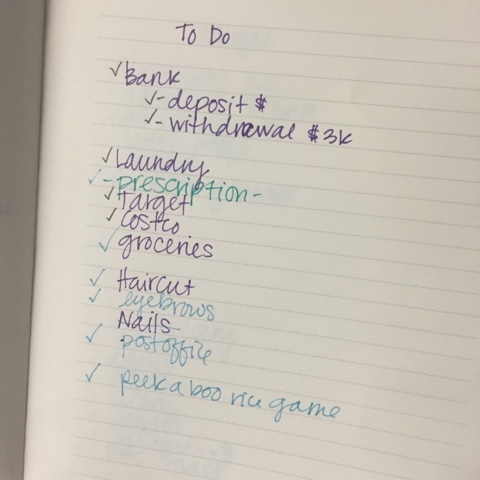 To Do
✓Bank
✓- deposit $
✓- withdrawal $3k
✓Laundry
✓- prescription -
✓Target
✓costco
✓groceries
✓ Haircut
✓ eyebrows
Nails
✓ post office
✓ peek a boo rice game